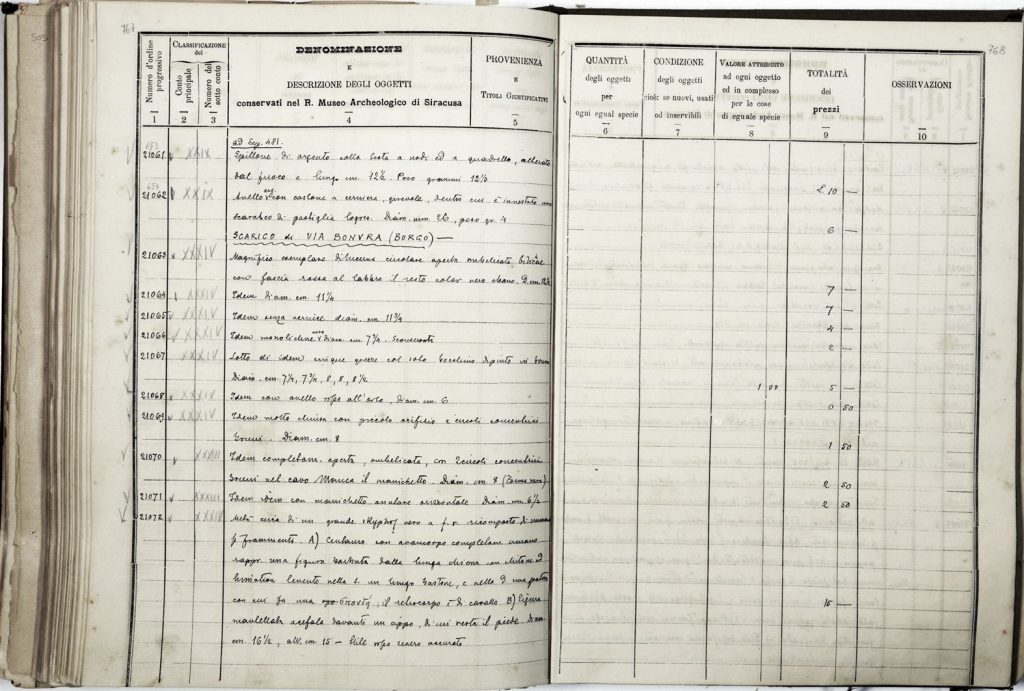 767
Numero d'ordine progressivo
CLASSIFICAZIONE del
Conto principale
Numero del sotto conto
DENOMINAZIONE
E
DESCRIZIONE DEGLI OGGETTI
conservati nel R. Museo Archeologico di Siracusa
PROVENIENZA
E
TITOLI GIUSTIFICATIVI
1 2 3 4 5
ad Sep. 481.
21061 XXIX Spillone di argento colla testa a nodi ed a quadrello, alterato
dal fuoco e lungo cm. 12½ Peso grammi 12½
21062 XXIX Anello arg. con castone a cerniera, girevole, dentro cui è innestato uno
scarabeo di pastiglia logoro. Diam. mm. 26, peso gr. 4
SCARICO di VIA BONURA (BORGO) —
21063 XXXIV Magnifico esemplare di lucerna circolare aperta umbelicata
con fascia rossa al labbro il resto color nero ebano. D. cm. 12½
21064 XXXIV Idem diam. cm. 11¼
21065 XXXIV Idem senza vernice diam. cm. 11¾
21066 XXXIV Idem monolicne nera Diam. cm. 7¾.
21067 XXXIV Lotto di idem cinque grezze col solo beccuccio dipinto in bruno
Diam. cm. 7½, 7¾, 8, 8, 8½
21068 XXXIV Idem con anello rosso all'orlo, Diam. cm. 6
21069 XXXIV Idem molto chiusa con piccolo orifizio e circoli concentrici
bruni. Diam. cm. 8
21070 XXXIII Idem completam. aperta, umbelicata, con 2 circoli concentrici
bruni nel cavo Monca il manichetto. Diam. cm 8 (forma rara)
21071 XXXIII Idem idem con manichetto anulare orizzontale Diam. cm. 6¼
21072 XXXIV Metà circa di un grande skyphos nero a f. r. ricomposto di numerosi
frammenti. A) Centauro con avancorpo completam. umano
rappr. una figura barbuta dalla lunga chioma con chitone ed
himation tenente nella s. un lungo bastone, e nella d una patera
con cui fa una σπονδή; il retrocorpo è di cavallo B) Figura
mantellata acefala davanti un cippo, di cui resta il piede. Diam.
cm. 16½, alt. cm 15 — Stile rosso severo accurato
768
QUANTITÀ
degli oggetti
per
ogni egual specie
CONDIZIONE
degli oggetti
cioè: se nuovi, usati
od inservibili
VALORE ATTRIBUITO
ad ogni oggetto
od in complesso
per le cose
di eguale specie
TOTALITÀ
dei
prezzi
OSSERVAZIONI
6 7 8 9 10
£ 10 —
6 —
7 —
7 —
4 —
2 —
1 00 5 —
0 50
1 50
2 50
2 50
15 —